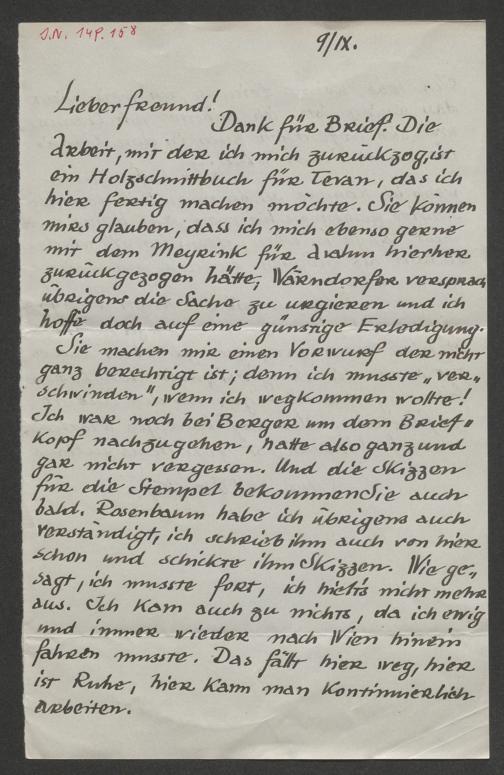 J.N. 149.158
9/IX.
Lieber freund!
Dank für Brief. Die
Arbeit, mit der ich mich zurückzog, ist
ein Holzschnittbuch für Tevan, das ich
hier fertig machen möchte. Sie können
mirs glauben, dass ich mich ebenso gerne
mit dem Meyrink für Avalun hierher
zurückgezogen hätte; Wärndorfer versprach
übrigens die Sache zu urgieren und ich
hoffe doch auf eine günstige Erledigung.
Sie machen mir einen Vorwurf der nicht
ganz berechtigt ist; denn ich musste „ver„
schwinden", wenn ich wegkommen wollte!
Ich war noch bei Berger um dem Brief„
kopf nachzugehen, hatte also ganz und
gar nicht vergessen. Und die Skizzen
für die Stempel bekommen Sie auch
bald. Rosenbaum habe ich übrigens auch
verständigt, ich schrieb ihm auch von hier
schon und schickte ihm Skizzen. Wie ge„
sagt, ich musste fort, ich hielt's nicht mehr
aus. Ich kam auch zu nichts, da ich ewig
und immer wieder nach Wien hinein
fahren musste. Das fällt hier weg, hier
ist Ruhe, hier kann man kontinuierlich
arbeiten.